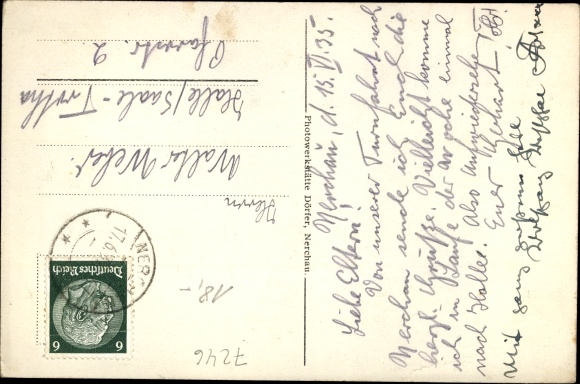 Nerchau, d. 15. VI. 35.
Liebe Eltern!
Von unserer Turnfahrt nach
Nerchau sende ich Euch die
herzl. Grüsse. Vielleicht komme
ich im Laufe der Woche einmal
nach Halle. Also Aufwiedersehn
Euer Gerhart
Mit ganz
Photowerkstätte Dörfer, Nerchau.
NERCHAU
17.6.
Deutsches Reich
6
6
Herrn
Walter Weber
Halle/Saale-Trotha
Pfarrstr. 2.
18,-
7246